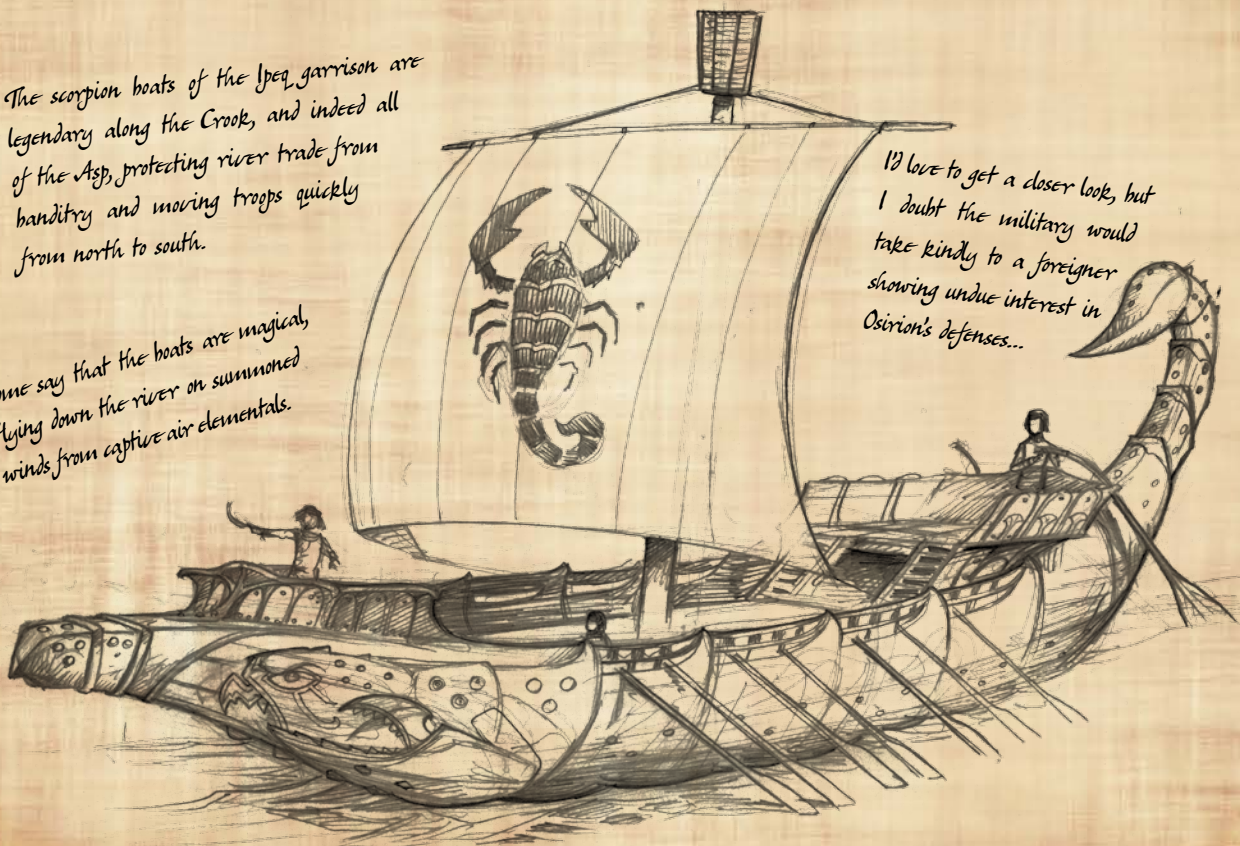 The scorpion boats of the Ipeq garrison are
legendary along the Crook, and indeed all
of the Asp, protecting river trade from
banditry and moving troops quickly
from north to south.
say that the boats are magical,
flying down the river on summoned
winds from captive air elementals.
I'd love to get a closer look, but
I doubt the military would
take kindly to a foreigner
showing undue interest in
Osirion's defenses...